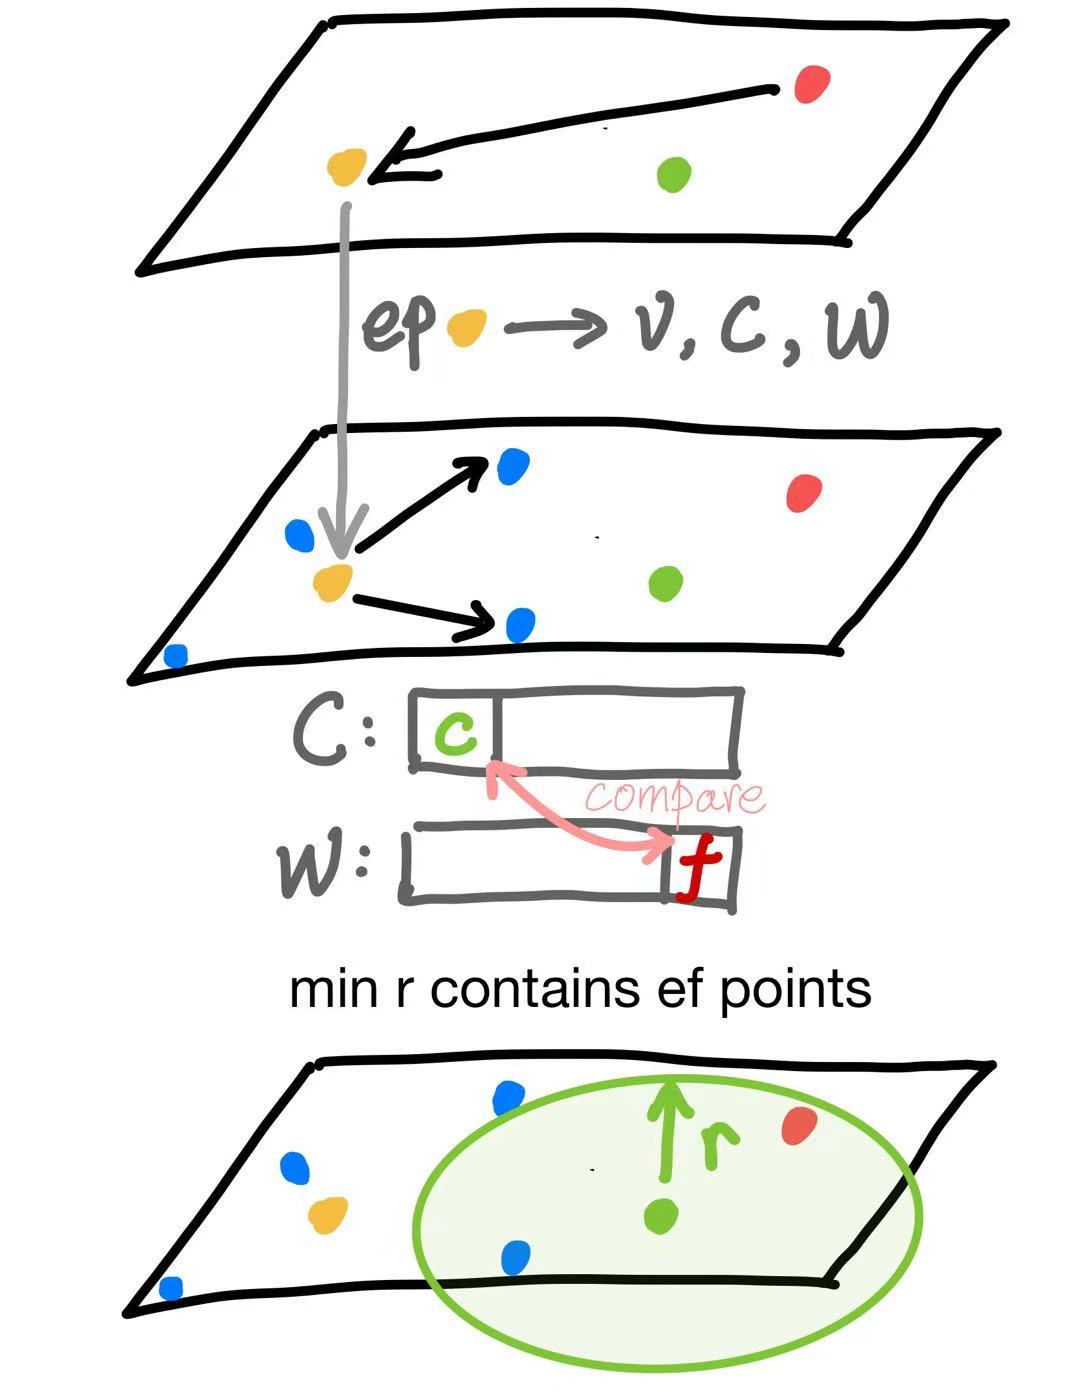 ep → v, C, W
C: c
compare
W: f
min r contains ef points
r